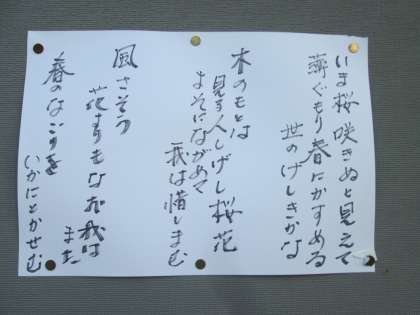 いま桜咲きぬと見えて
薄ぐもり春にかすめる
世のけしきかな
木のもとは
見る人しげし桜花
よそにながめて
我は惜しまむ
風さそう
花よりもなお我は
また
春のなごりを
いかにとかせむ